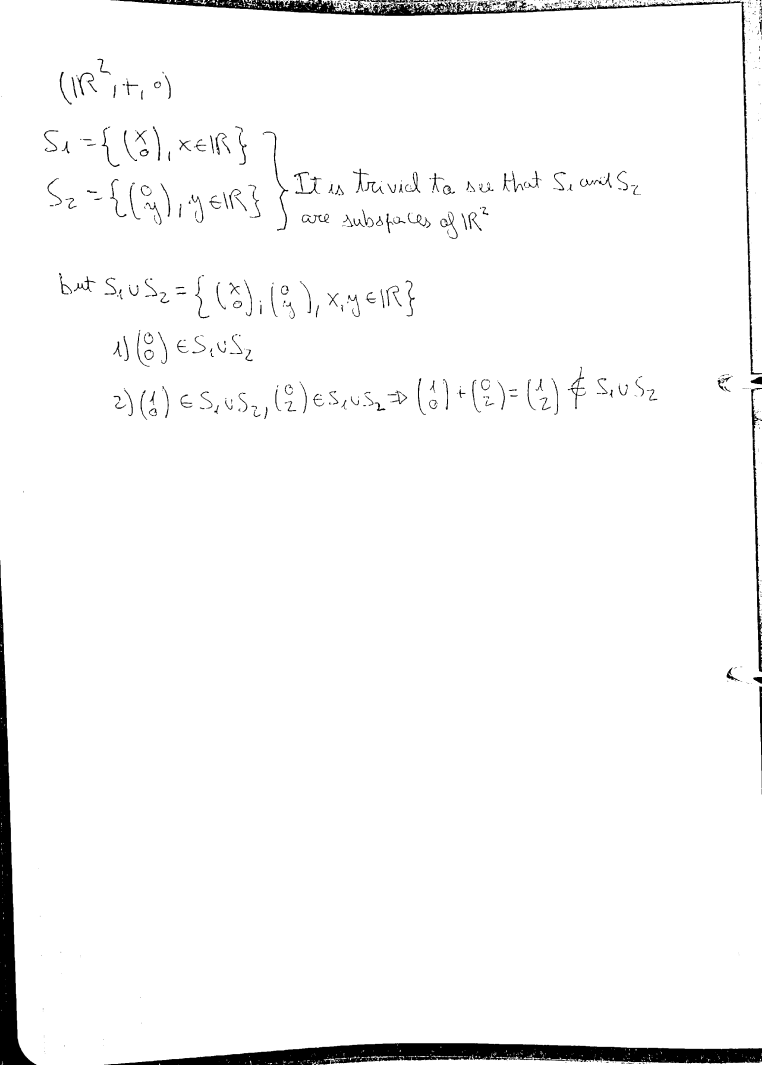 (ℝ², +, ∘)
S₁ = { (x 0), x ∈ ℝ }
S₂ = { (0 y), y ∈ ℝ } } It is trivial to see that S₁ and S₂
are subspaces of ℝ²
but S₁ ∪ S₂ = { (x 0); (0 y), x, y ∈ ℝ }
1) (0 0) ∈ S₁ ∪ S₂
2) (1 0) ∈ S₁ ∪ S₂, (0 2) ∈ S₁ ∪ S₂ ⇒ (1 0) + (0 2) = (1 2) ∉ S₁ ∪ S₂